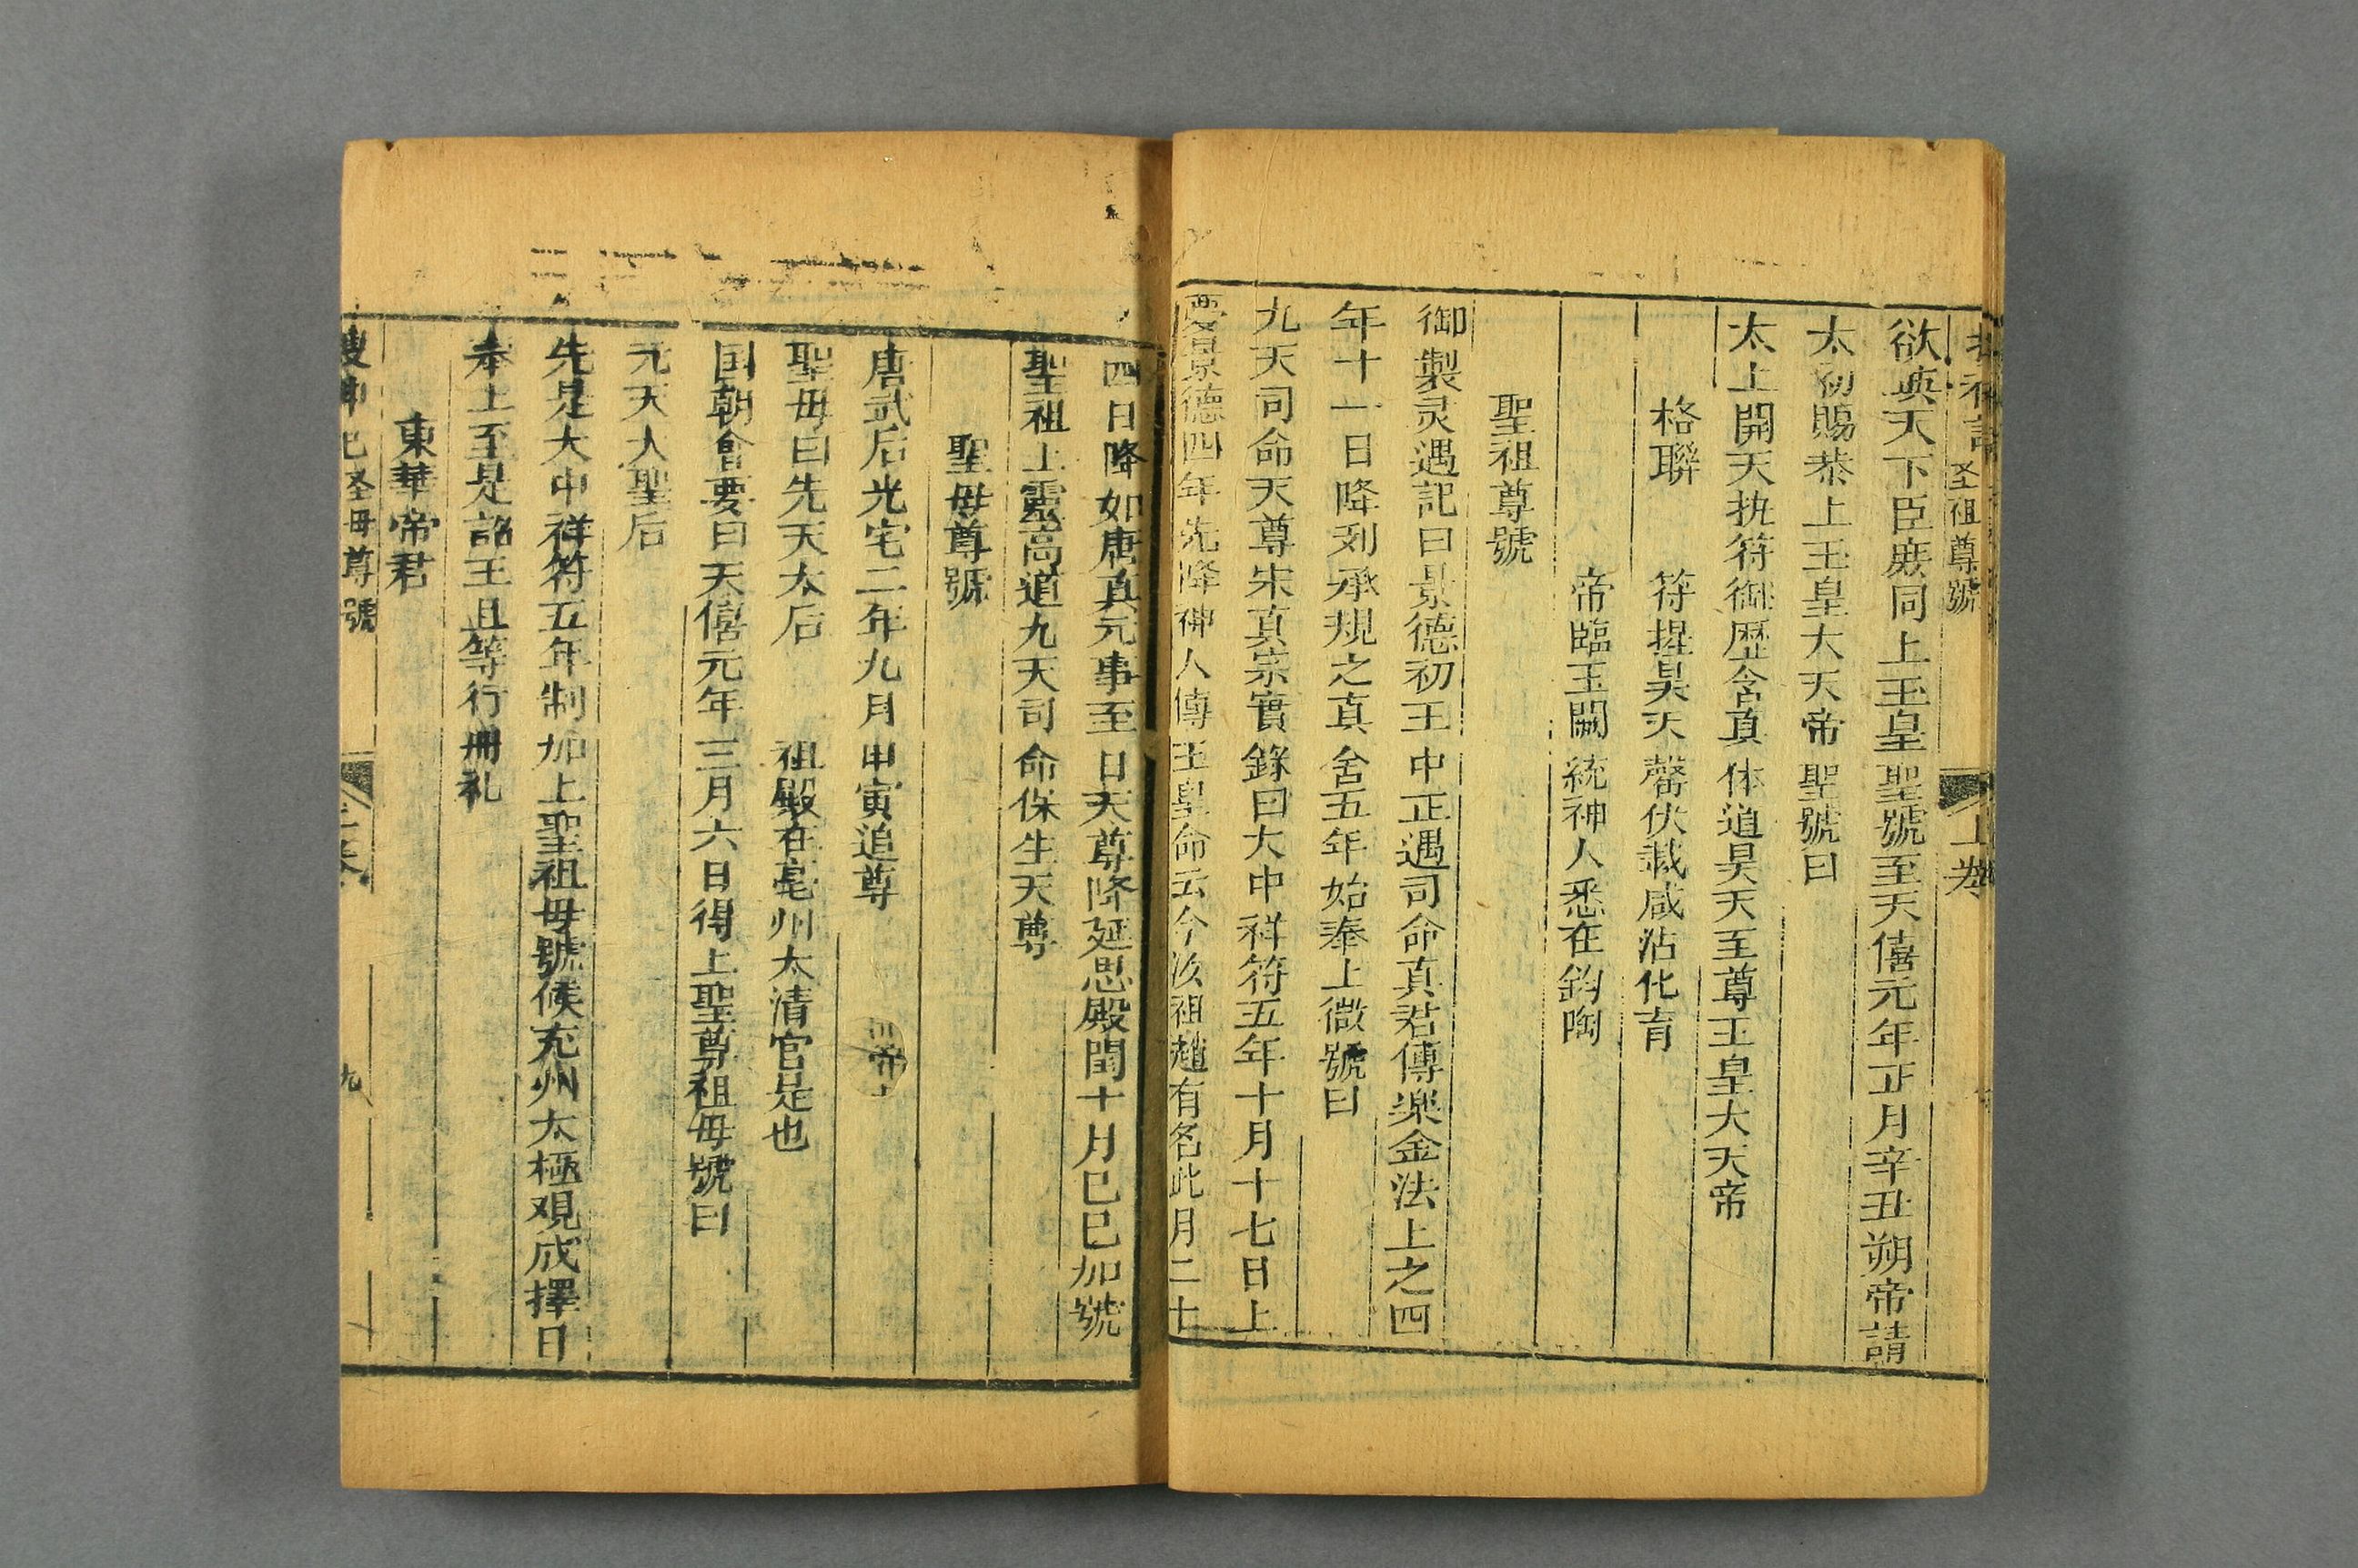 搜神記 圣祖尊號 上卷
欲與天下臣庶同上玉皇聖號至天僖元年正月辛丑朔帝請
太初賜恭上玉皇大天帝聖號曰
太上開天执符御歷含真体道昊天至尊玉皇大天帝
格聯 符握昊天馨伏載咸沾化育
帝臨玉闕統神人悉在鈞陶
聖祖尊號
御製灵遇記曰景德初王中正遇司命真君傳樂金法上之四
年十一日降刘承規之真舍五年始奉上微號曰
九天司命天尊宋真宗實錄曰大中祥符五年十月十七日上
夢景德四年先降神人傳玉皇命云今汝祖趙有名此月二十
四日降如唐真元事至日天尊降延恩殿閏十月巳巳加號
聖祖上靈高道九天司命保生天尊
聖毋尊號
唐武后光宅二年九月甲寅追尊
聖毋曰先天太后 祖殿在亳州太清宫是也
国朝會要曰天僖元年三月六日得上聖尊祖毋號曰
元天大聖后
先是大中祥符五年制加上聖祖毋號候充州太極观成擇日
奉上至是詔王且等行冊礼
東華帝君
搜神記 圣毋尊號 上卷 九